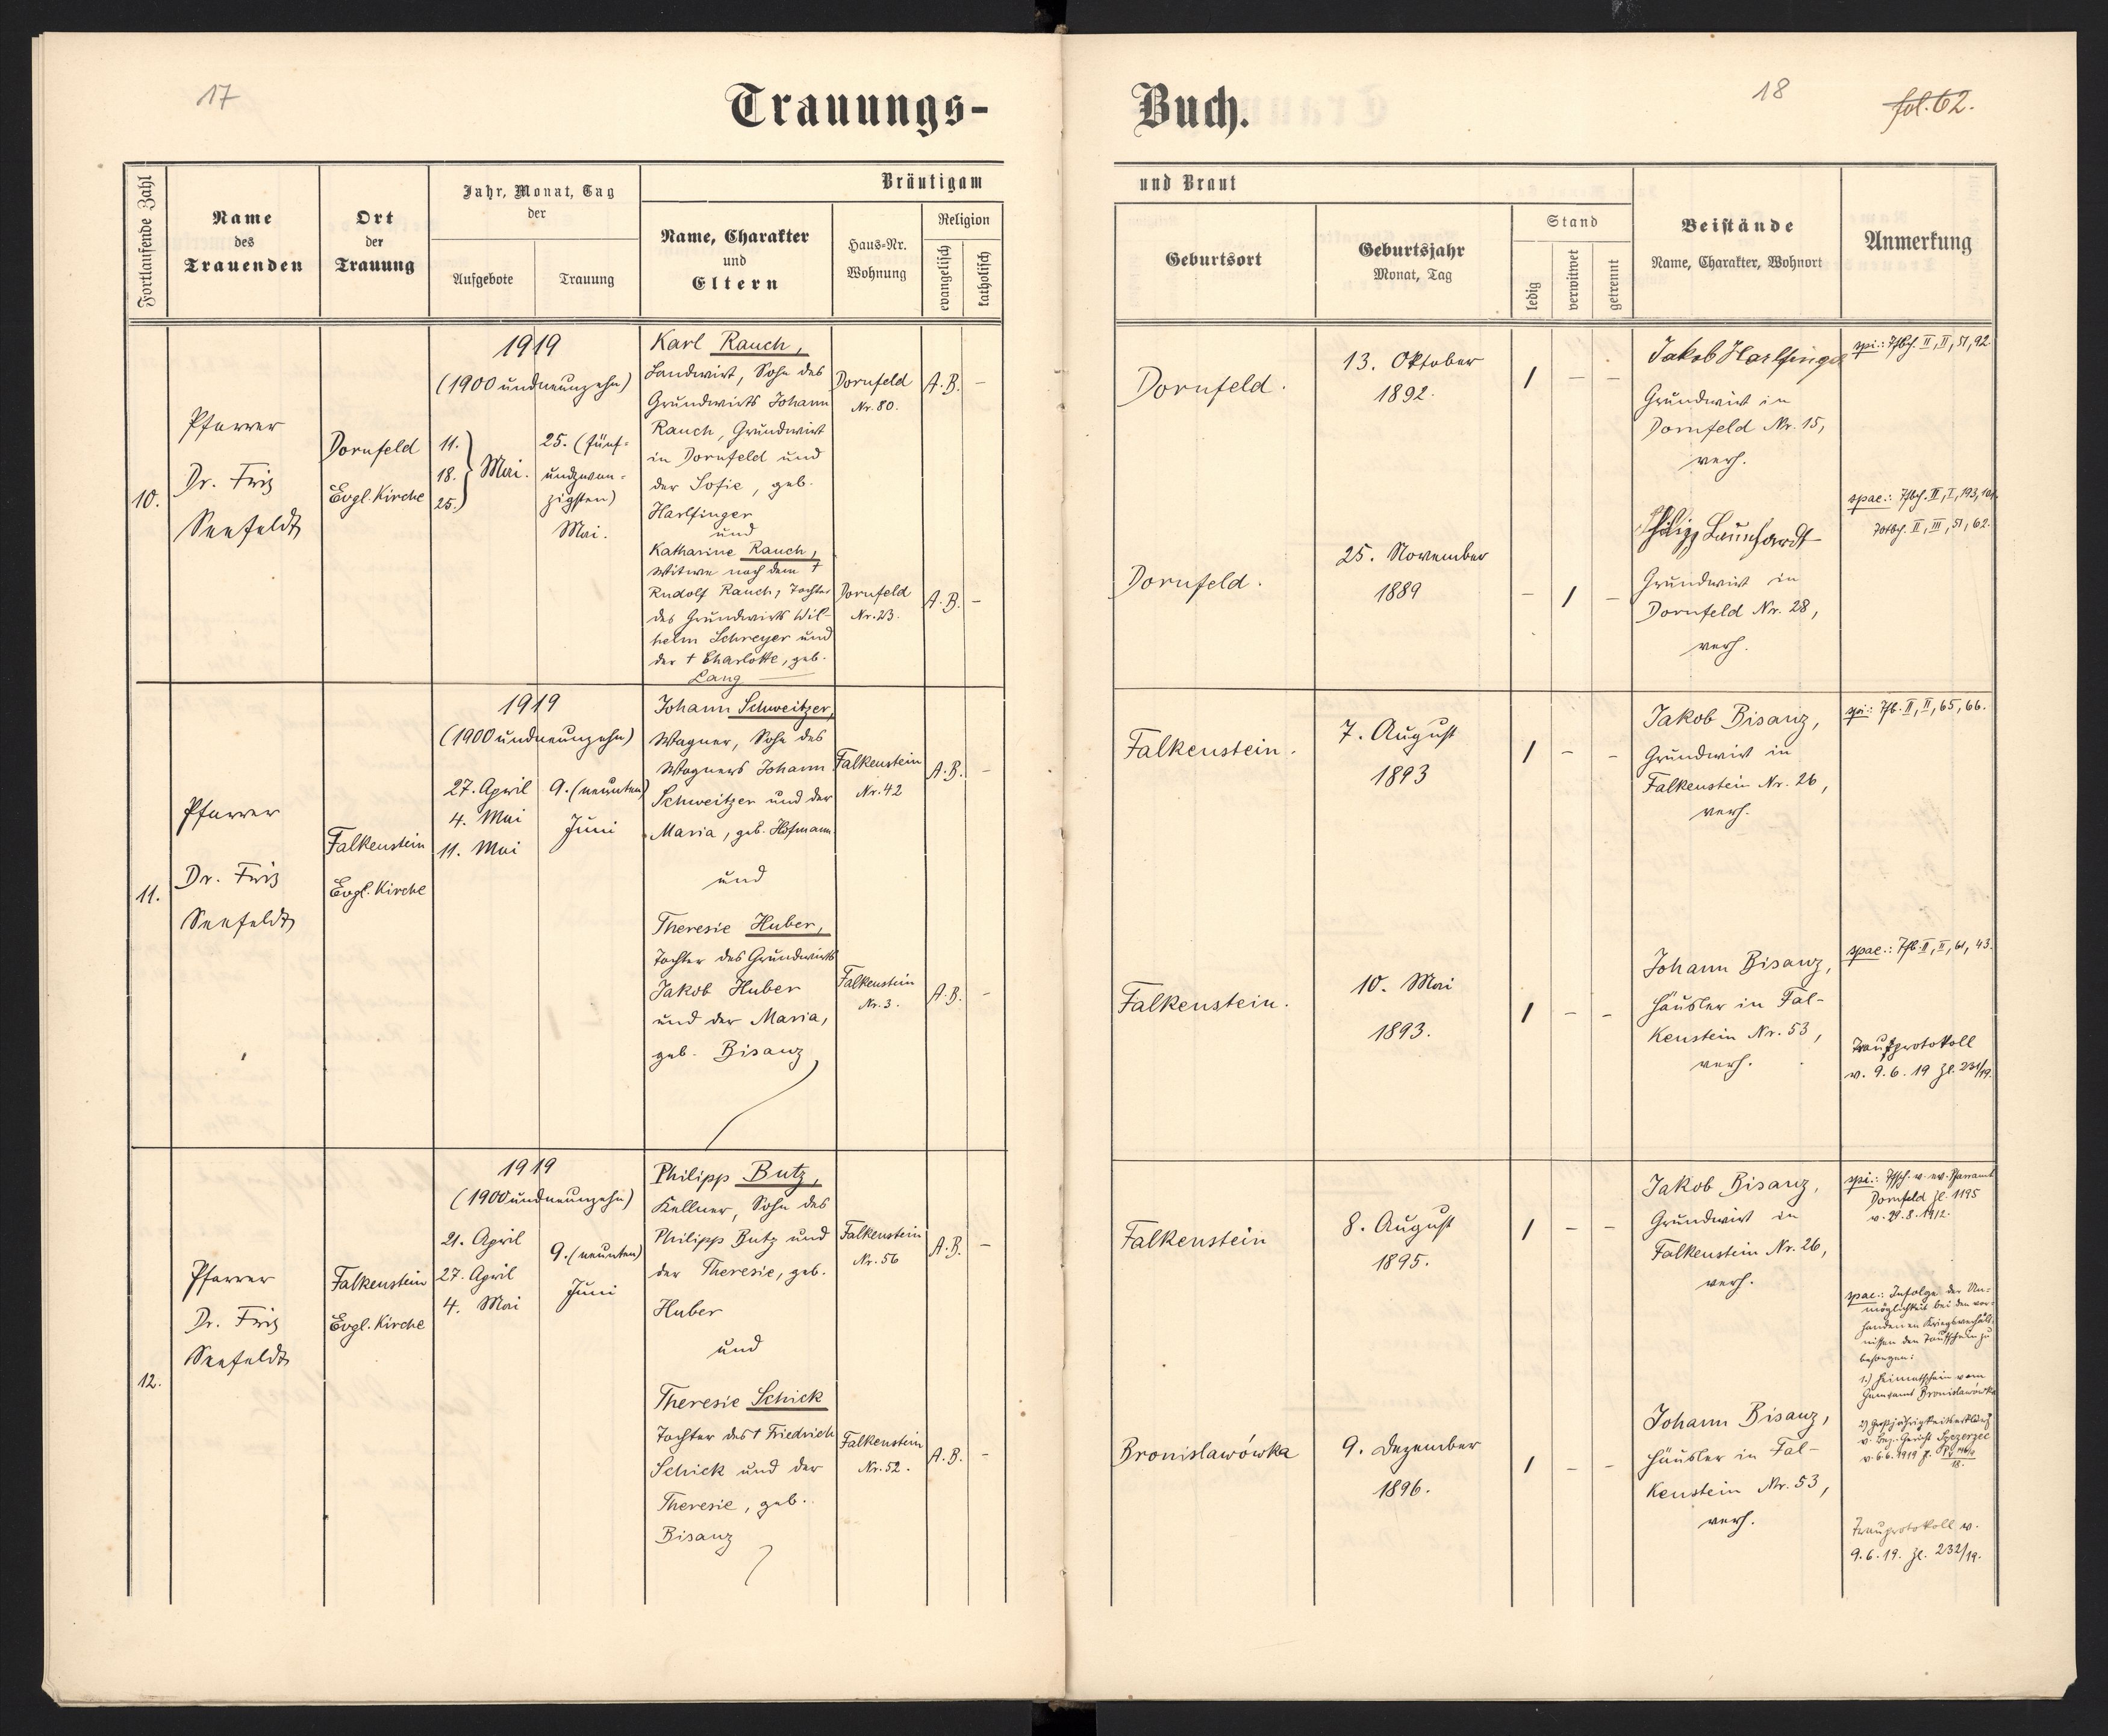 17
Trauungs-
Fortlaufende Zahl
Name
des
Trauenden
Ort
der
Trauung
Jahr, Monat, Tag
der
Aufgebote
Trauung
Bräutigam
Name, Charakter
und
Eltern
Haus-Nr.
Wohnung
Religion
evangelisch
katholisch
10.
Pfarrer
Dr. Friz
Seefeldt
Dornfeld
Evgl. Kirche
1919
(1900 undneunzehn)
11.
18.
25.
Mai.
25. (fünf-
undzwan-
zigsten)
Mai.
Karl Rauch,
Landwirt, Sohn des
Grundwirts Johann
Rauch, Grundwirt
in Dornfeld und
der Sofie, geb.
Harlfinger
und
Katharine Rauch,
Witwe nach dem †
Rudolf Rauch, Tochter
des Grundwirts Wil-
helm Schreyer und
der † Charlotte, geb.
Lang
Dornfeld
Nr. 80.
A.B. –
Dornfeld
Nr. 23.
A.B. –
11.
Pfarrer
Dr. Friz
Seefeldt
Falkenstein
Evgl. Kirche
1919
(1900 undneunzehn)
27. April
4. Mai
11. Mai
9. (neunten)
Juni
Johann Schweitzer,
Wagner, Sohn des
Wagners Johann
Schweitzer und der
Maria, geb. Hofmann.
und
Theresie Huber,
Tochter des Grundwirts
Jakob Huber
und der Maria,
geb. Bisanz
Falkenstein
Nr. 42
A.B. –
Falkenstein
Nr. 3.
A.B. –
12.
Pfarrer
Dr. Friz
Seefeldt
Falkenstein
Evgl. Kirche
1919
(1900 undneunzehn)
21. April
27. April
4. Mai
9. (neunten)
Juni
Philipp Butz,
Kellner, Sohn des
Philipp Butz und
der Theresie, geb.
Huber
und
Theresie Schick
Tochter des † Friedrich
Schick und der
Theresie, geb.
Bisanz
Falkenstein
Nr. 56
A.B. –
Falkenstein
Nr. 52.
A.B. –
Buch.
18
fol. 62.
und Braut
Geburtsort
Geburtsjahr
Monat, Tag
Stand
ledig
verwitwet
getrennt
Beistände
Name, Charakter, Wohnort
Anmerkung
Dornfeld.
13. Oktober
1892.
/ – –
Jakob Harlfinger
Grundwirt in
Dornfeld Nr. 15,
verh.
spi.: Tfbch. II, II, 51, 92.
Dornfeld.
25. November
1889
– / –
Philipp Launhardt
Grundwirt in
Dornfeld Nr. 28,
verh.
spae.: Tfbch. II, I, 193,
Totbch. II, III, 51, 62.
Falkenstein.
7. August
1893
/ – –
Jakob Bisanz,
Grundwirt in
Falkenstein Nr. 26,
verh.
spi.: Tfb. II, II, 65, 66.
Falkenstein.
10. Mai
1893.
/ – –
Johann Bisanz,
Häusler in Fal-
kenstein Nr. 53,
verh.
spae.: Tfb. II, II, 61, 43.
Trauprotokoll
v. 9.6.19 Zl. 231/19.
Falkenstein
8. August
1895.
/ – –
Jakob Bisanz,
Grundwirt in
Falkenstein Nr. 26,
verh.
spi.: Tfsch. v. ev. Pfarramt
Dornfeld Zl. 1195
v. 29.8.1912.
Bronislawówka
9. Dezember
1896.
/ – –
Johann Bisanz,
Häusler in Fal-
kenstein Nr. 53,
verh.
spae.: Infolge der Un-
möglichkeit bei den vor-
handenen Kriegsverhält-
nissen den Taufschein zu
besorgen:
1.) Heimatschein vom
Gemeamt Bronislawówka
2) Großjährigkeitserkläg
v. Bez. Gericht Szczerzec
v. 6.6.1919
Trauprotokoll v.
9.6.19. Zl. 232/19.